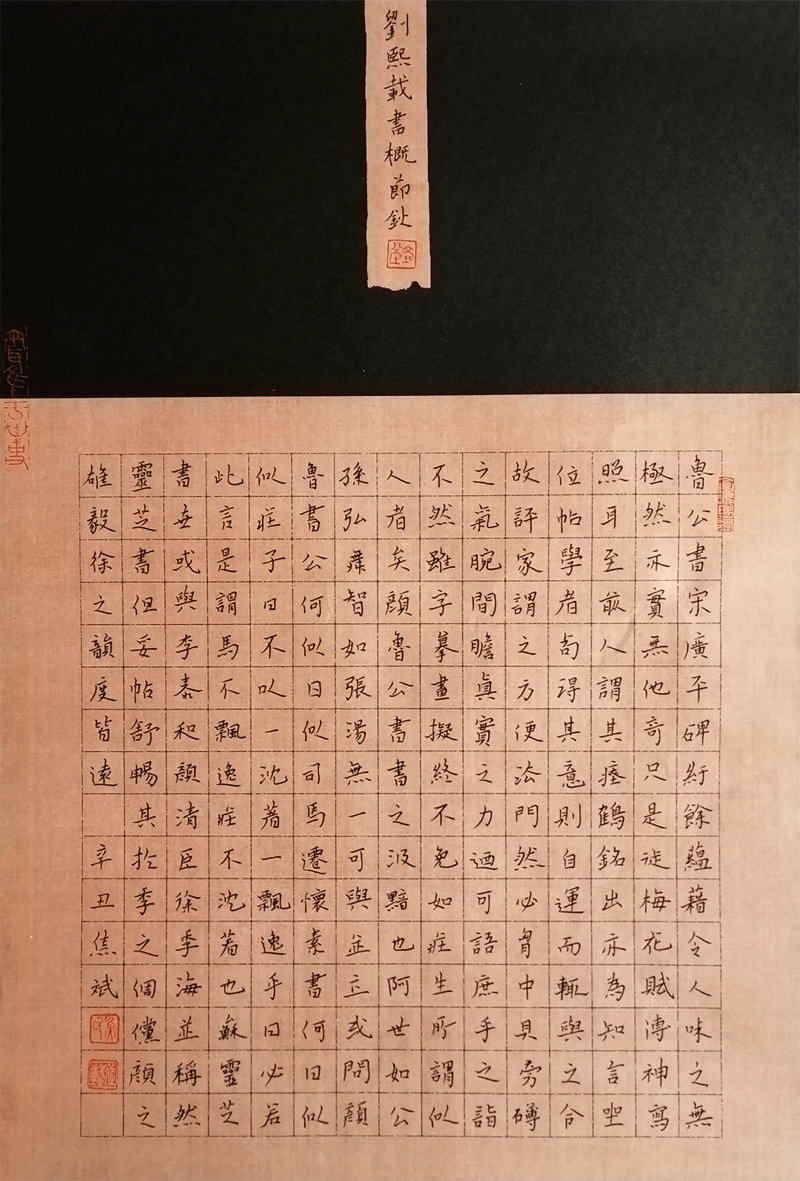 劉熙載書概節鈔
魯公書宋廣平碑紆餘蘊藉令人味之無
極然亦實無他奇只是從梅花賦傳神寫
照耳至前人謂其瘞鶴銘出亦為知言坐
位帖學者苟得其意則自運而輒與之合
故評家謂之方便法門然必胷中具旁礴
之氣腕間贍真實之力迺可語庶乎之詣
不然雖字摹畫擬終不免如莊生所謂似
人者矣顏魯公書書之汲黯也阿世如公
孫弘舞智如張湯無一可與並立或問顏
魯書公何似曰似司馬遷懷素書何曰似
似莊子曰不以一沈著一飄逸乎曰必若
此言是謂馬不飄逸莊不沈著也蘇靈芝
書世或與李泰和顏清臣徐季海並稱然
靈芝書但妥帖舒暢其於李之倜儻顏之
雄毅徐之韻度皆遠 辛丑焦斌